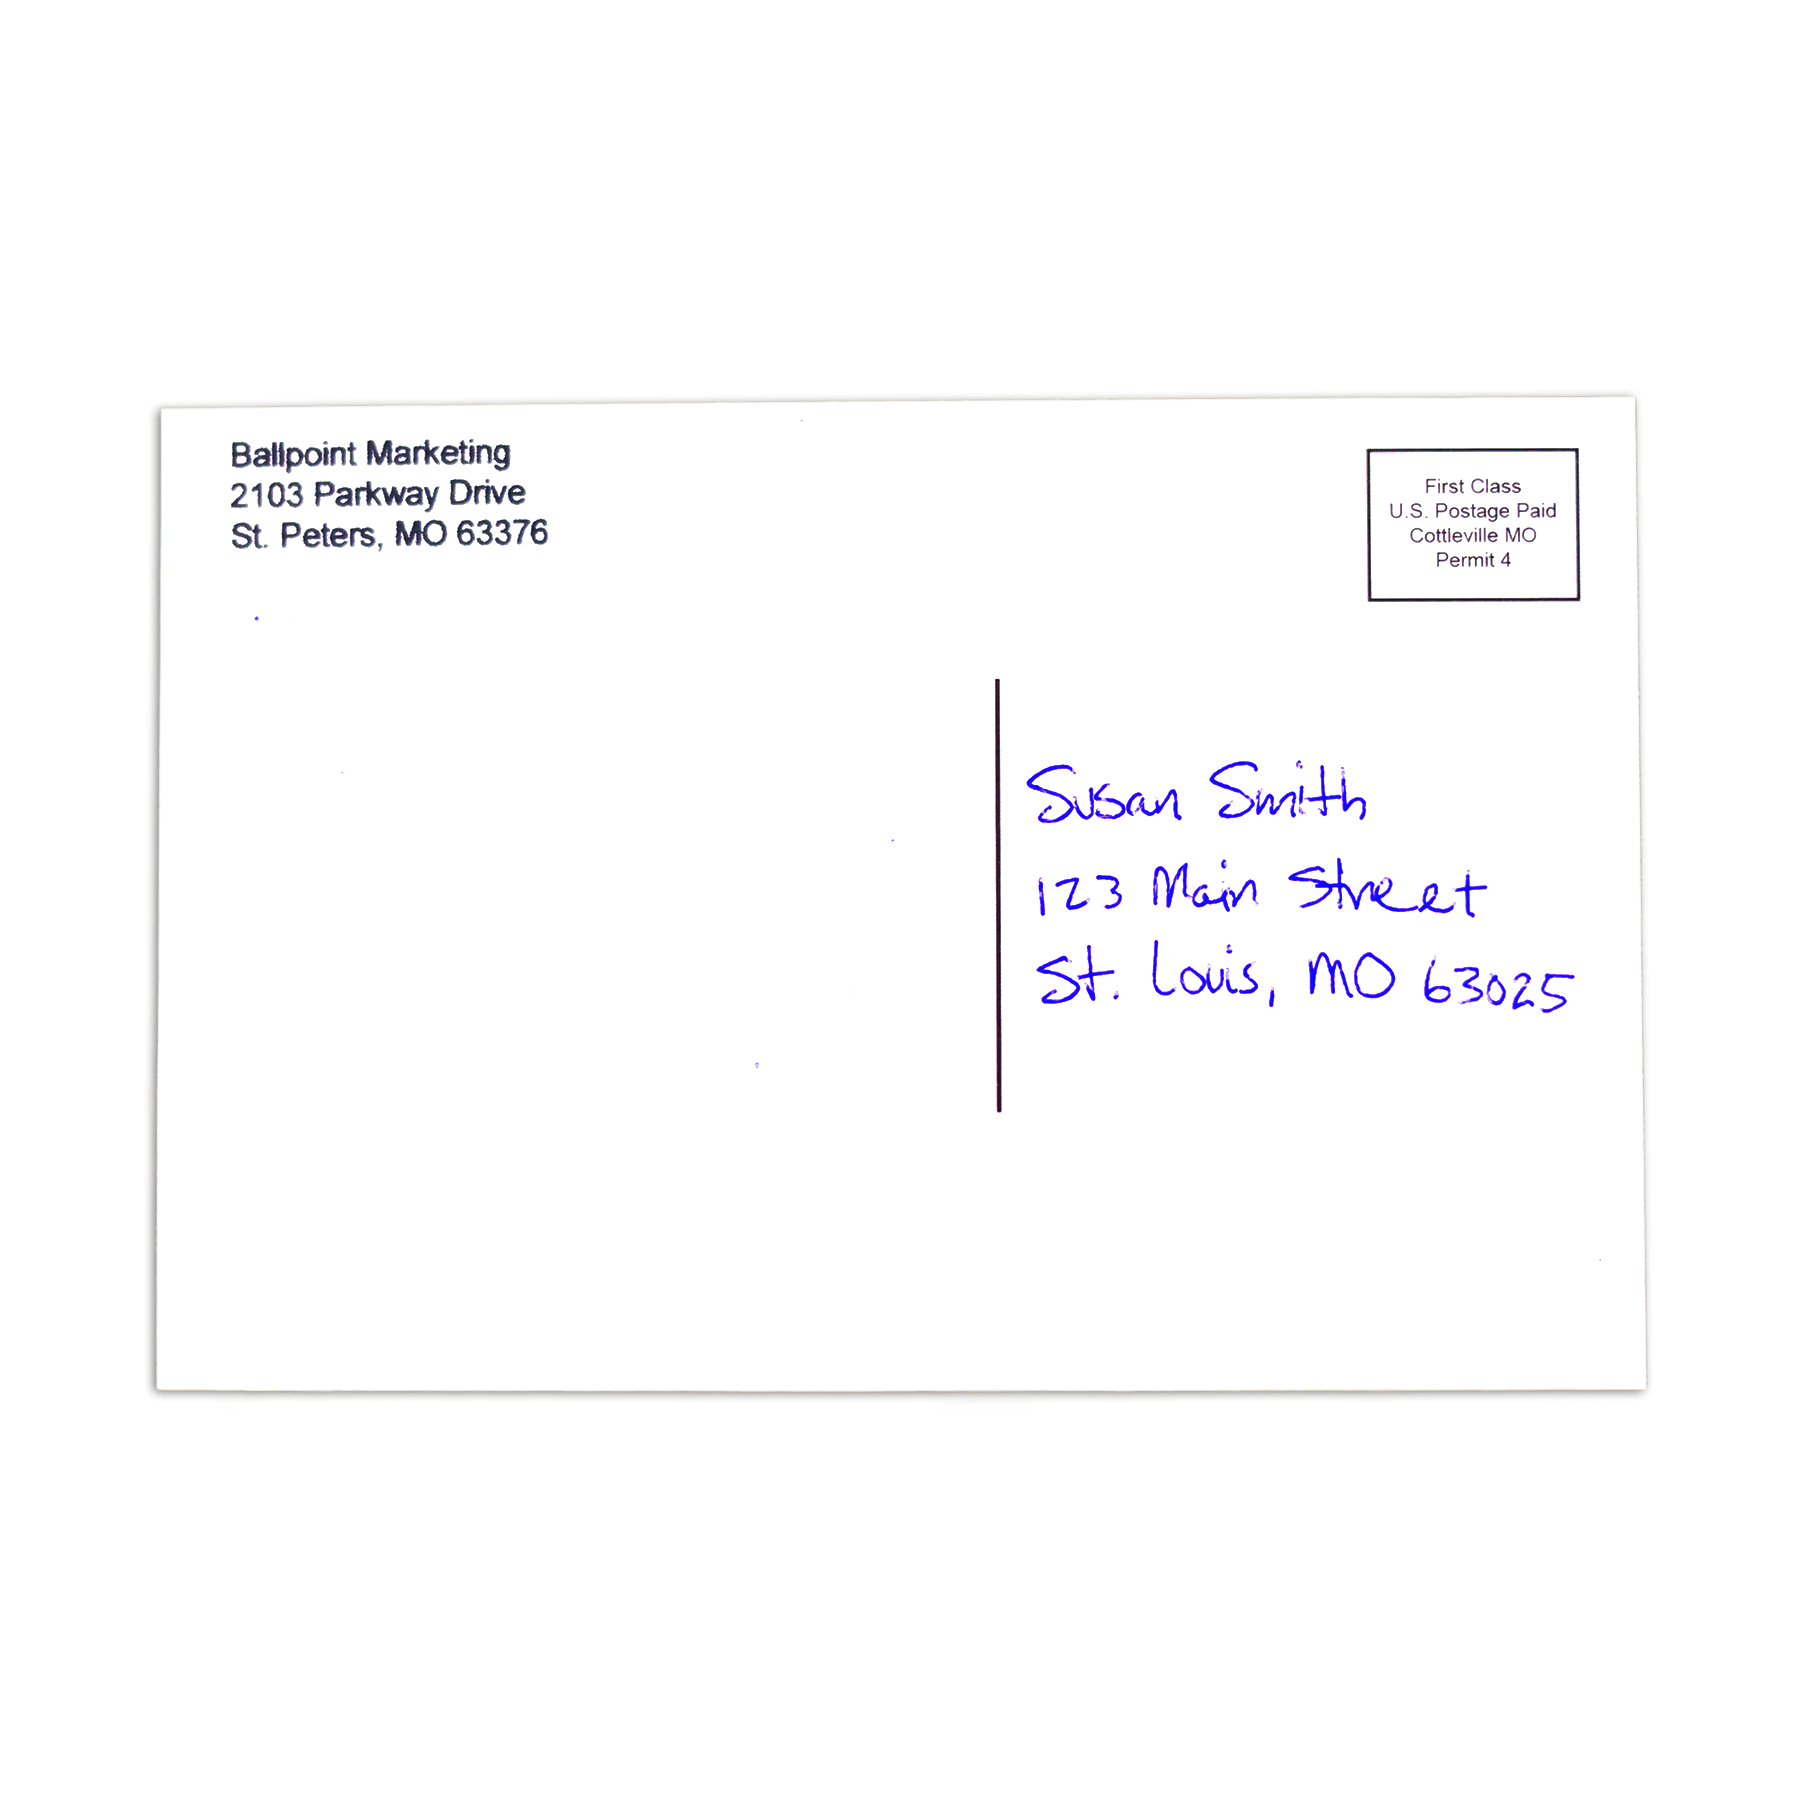 Ballpoint Marketing
2103 Parkway Drive
St. Peters, MO 63376
First Class
U.S. Postage Paid
Cottleville MO
Permit 4
Susan Smith
123 Main Street
St. Louis, MO 63025